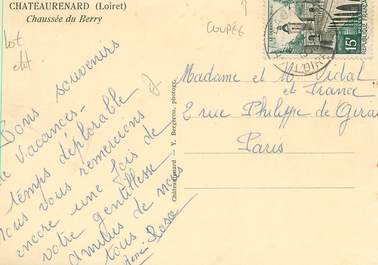 CHATEAURENARD (Loiret)
Chaussée du Berry
COUPÉE
lot
Bons souvenirs
de vacances -
temps déplorable
Nous vous remercions
encore une fois de
votre gentillesse
Amitiés de nous
tous
Rose
Châteaurenard — Y. Bergeron, photogr.
15F
Madame et M Vidal
et France
2 rue Philippe de Girard
Paris